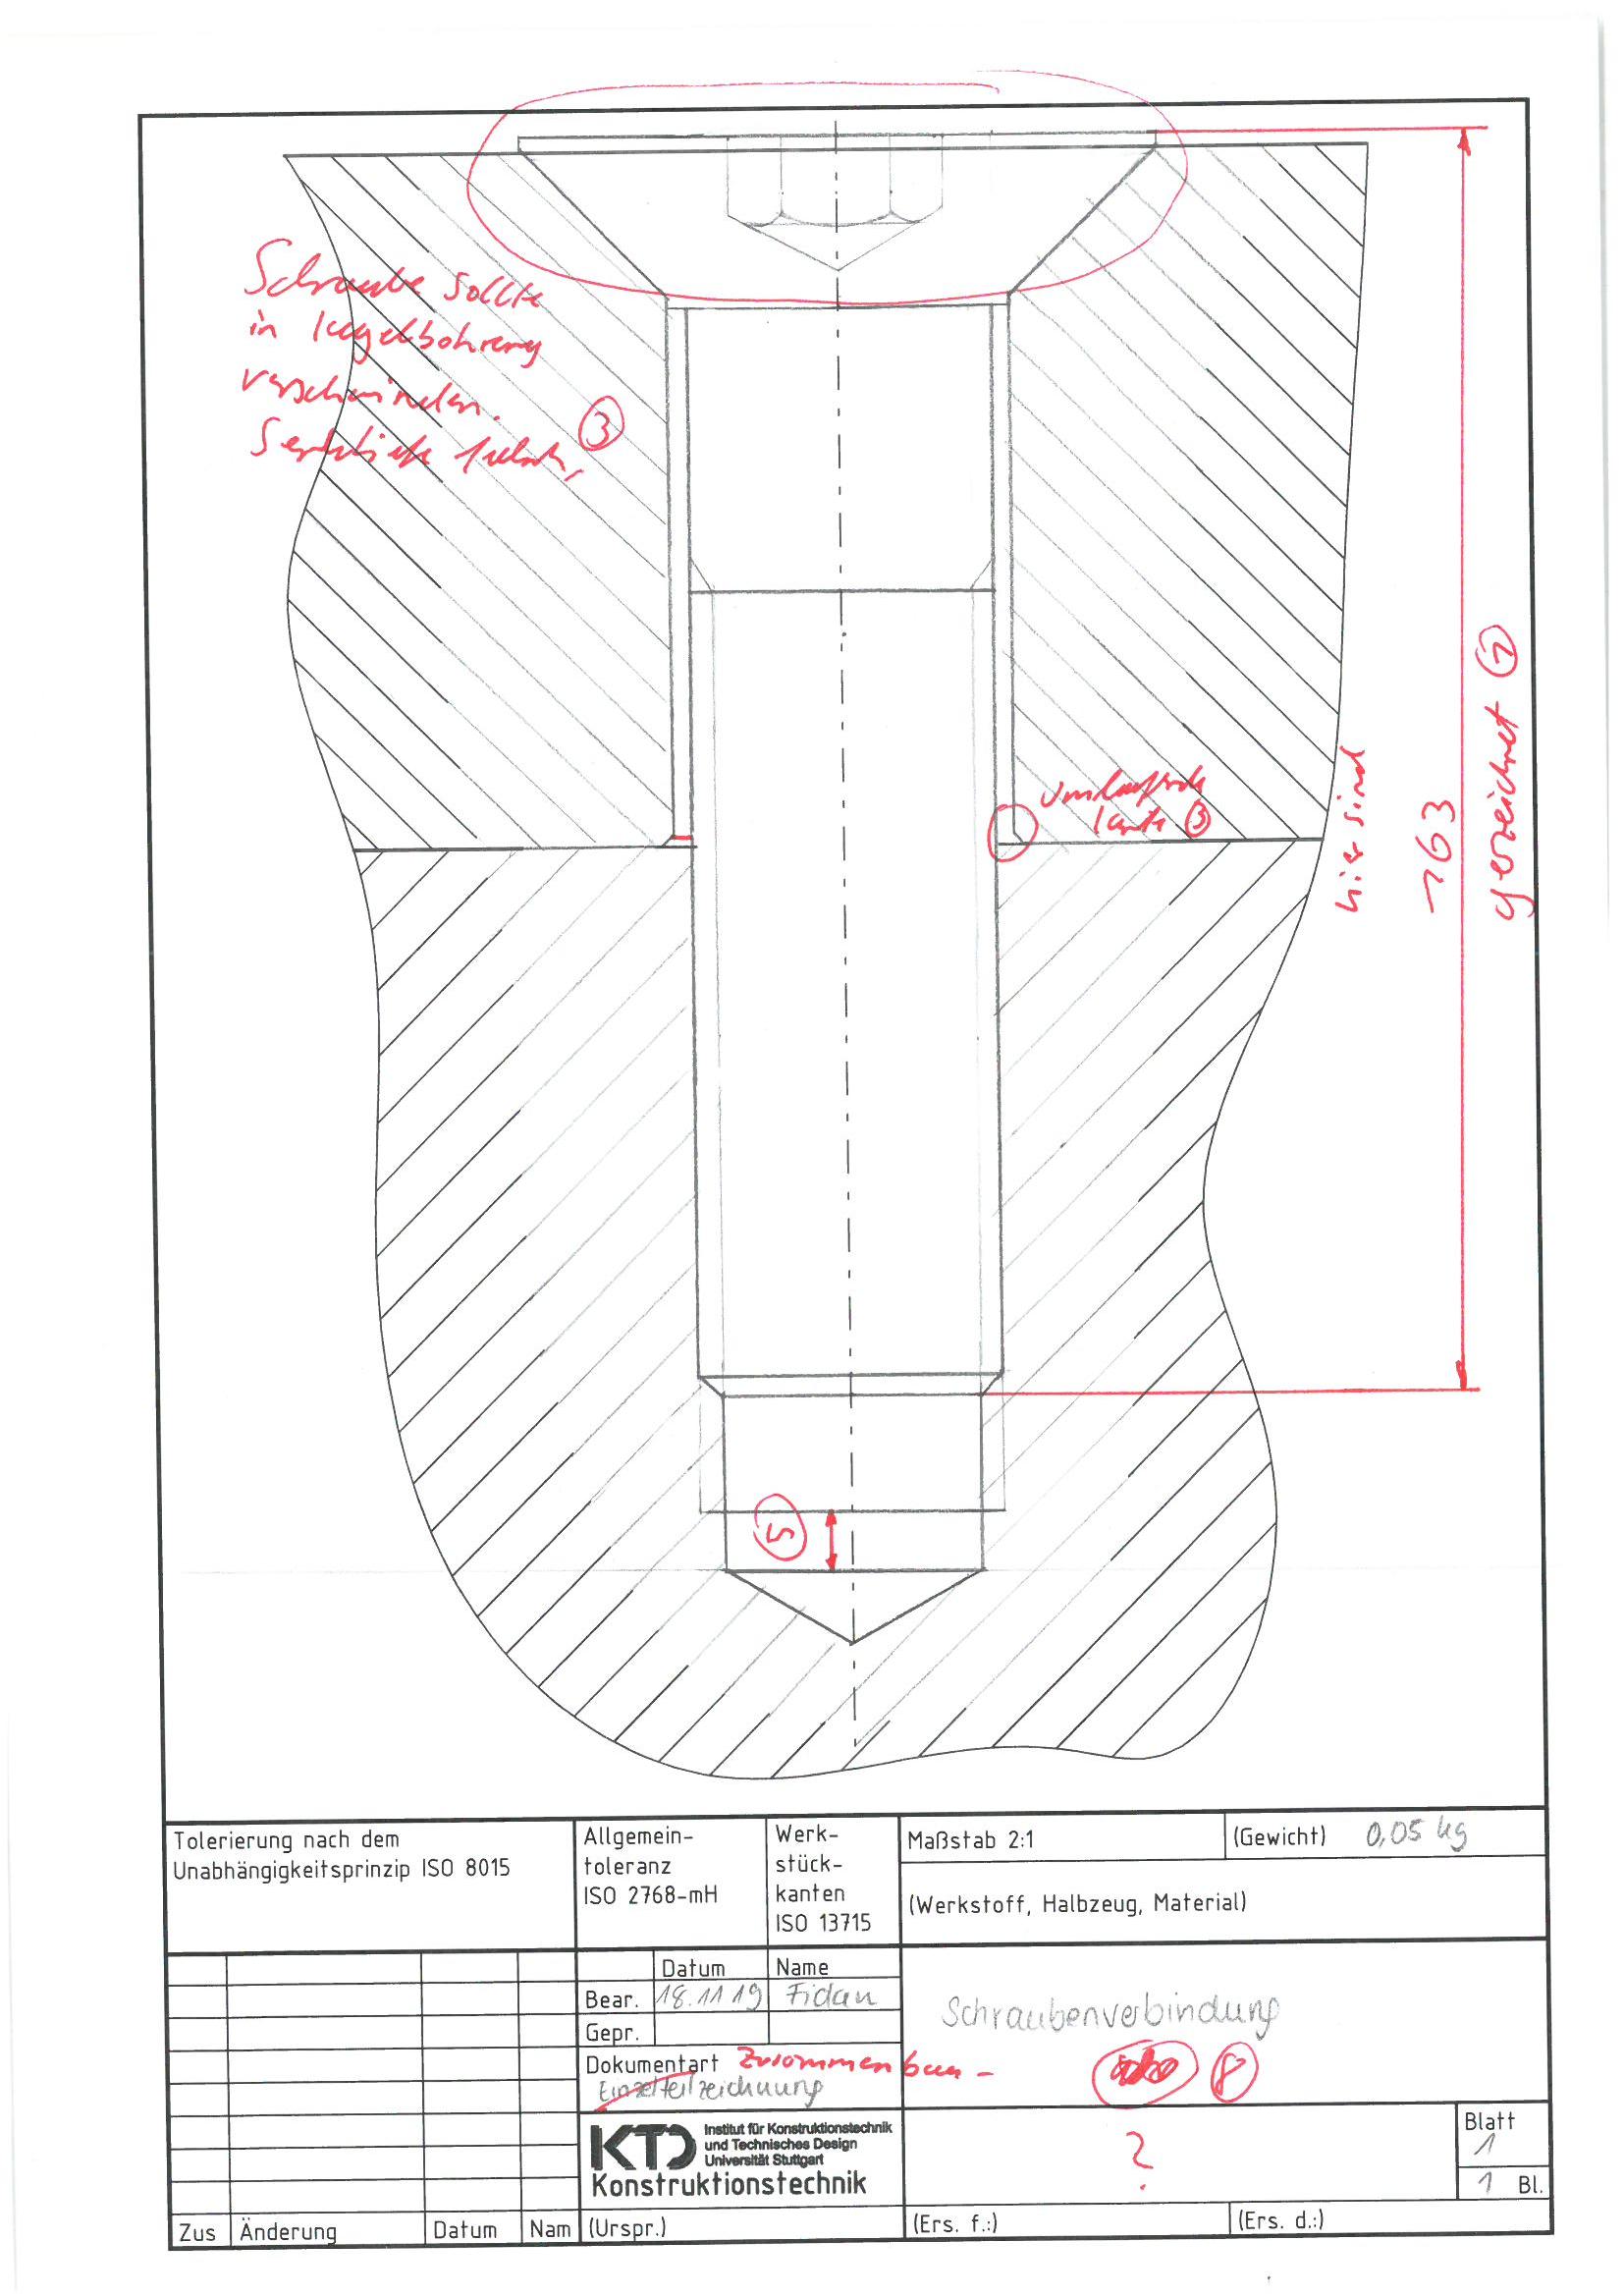 Schraube sollte
in Kegelbohrung
verschwinden.
Senktiefe falsch, ③
Umlaufende
Kante ③
hier sind
~63
gezeichnet ⑦
5
Tolerierung nach dem
Unabhängigkeitsprinzip ISO 8015
Allgemein-
toleranz
ISO 2768-mH
Werk-
stück-
kanten
ISO 13715
Maßstab 2:1
(Gewicht) 0,05 kg
(Werkstoff, Halbzeug, Material)
Datum Name
Bear. 18.11.19 Fidan
Gepr.
Dokumentart Zusammenbau-
Einzelteilzeichnung
Schraubenverbindung
⑧
KTD Institut für Konstruktionstechnik
und Technisches Design
Universität Stuttgart
Konstruktionstechnik
?
Blatt
1
1 Bl.
Zus Änderung Datum Nam (Urspr.) (Ers. f.:) (Ers. d.:)